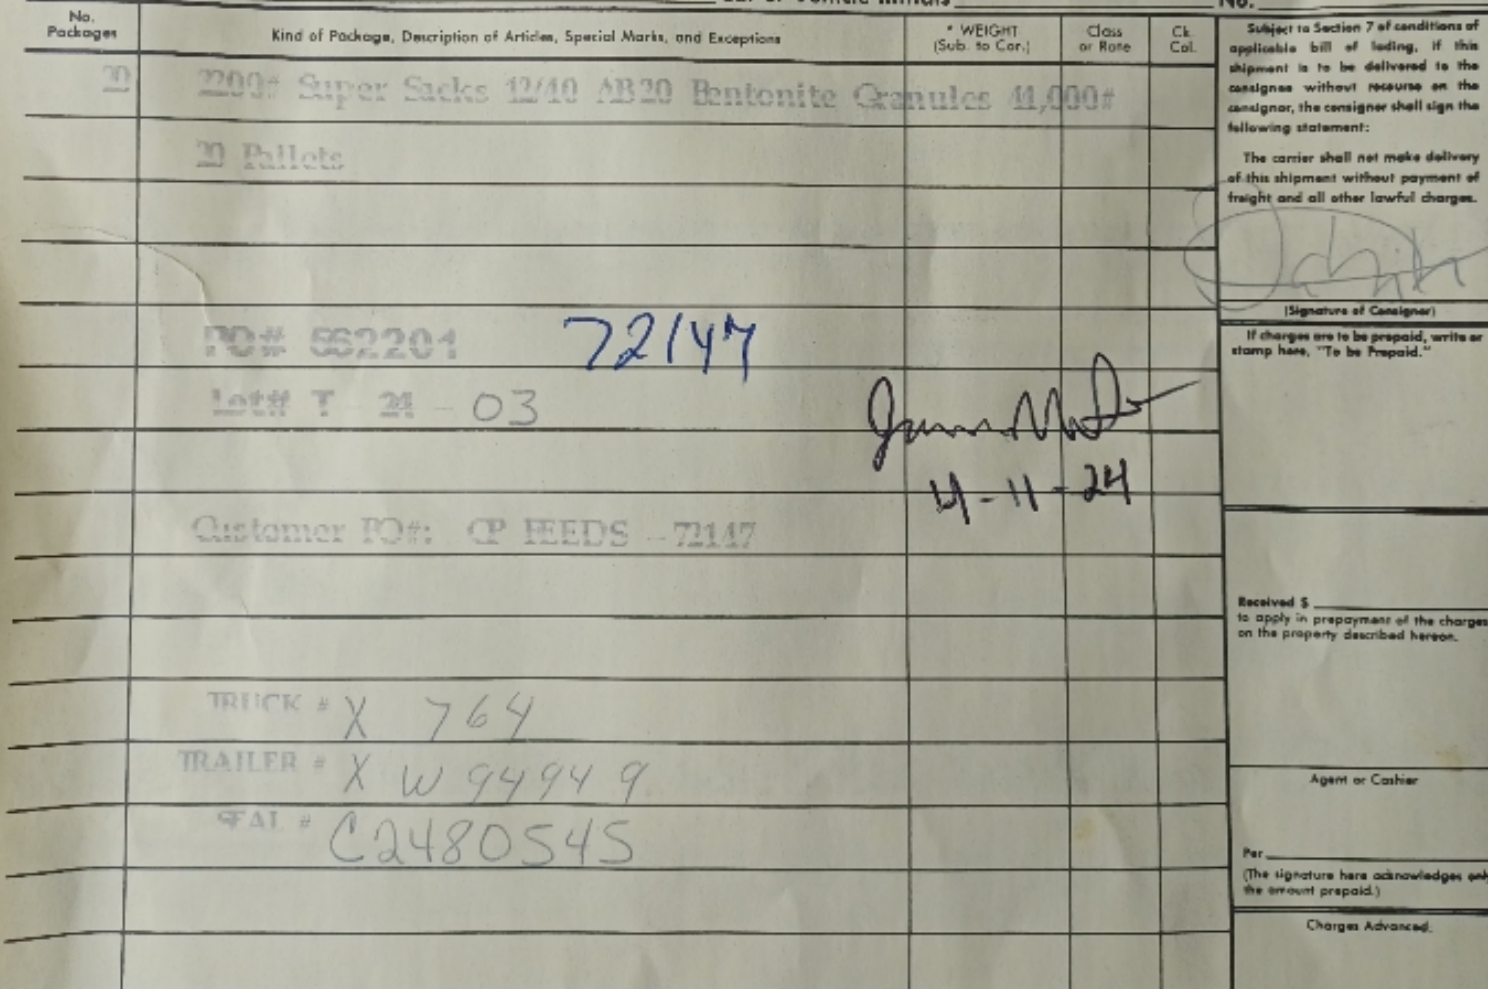 No.
Packages
Kind of Package, Description of Articles, Special Marks, and Exceptions
* WEIGHT
(Sub. to Cor.)
Class
or Rate
Ck.
Col.
20 2200# Super Sacks 12/40 AB20 Bentonite Granules 44,000#
20 Pallets
PO# 562204 72147
Lot# T 24 - 03
4-11-24
Customer PO#: CP FEEDS - 72147
TRUCK # X 764
TRAILER # X W94949
SEAL # C2480545
Subject to Section 7 of conditions of
applicable bill of lading, if this
shipment is to be delivered to the
consignee without recourse on the
consignor, the consignor shall sign the
following statement:
The carrier shall not make delivery
of this shipment without payment of
freight and all other lawful charges.
(Signature of Consignor)
If charges are to be prepaid, write or
stamp here, "To be Prepaid."
Received $
to apply in prepayment of the charges
on the property described hereon.
Agent or Cashier
Per
(The signature here acknowledges only
the amount prepaid.)
Charges Advanced: